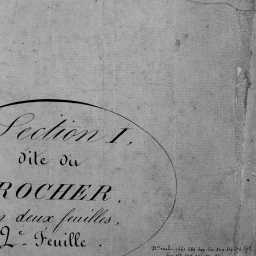 Section I,
dite du
ROCHER.
deux feuilles,
2e Feuille.